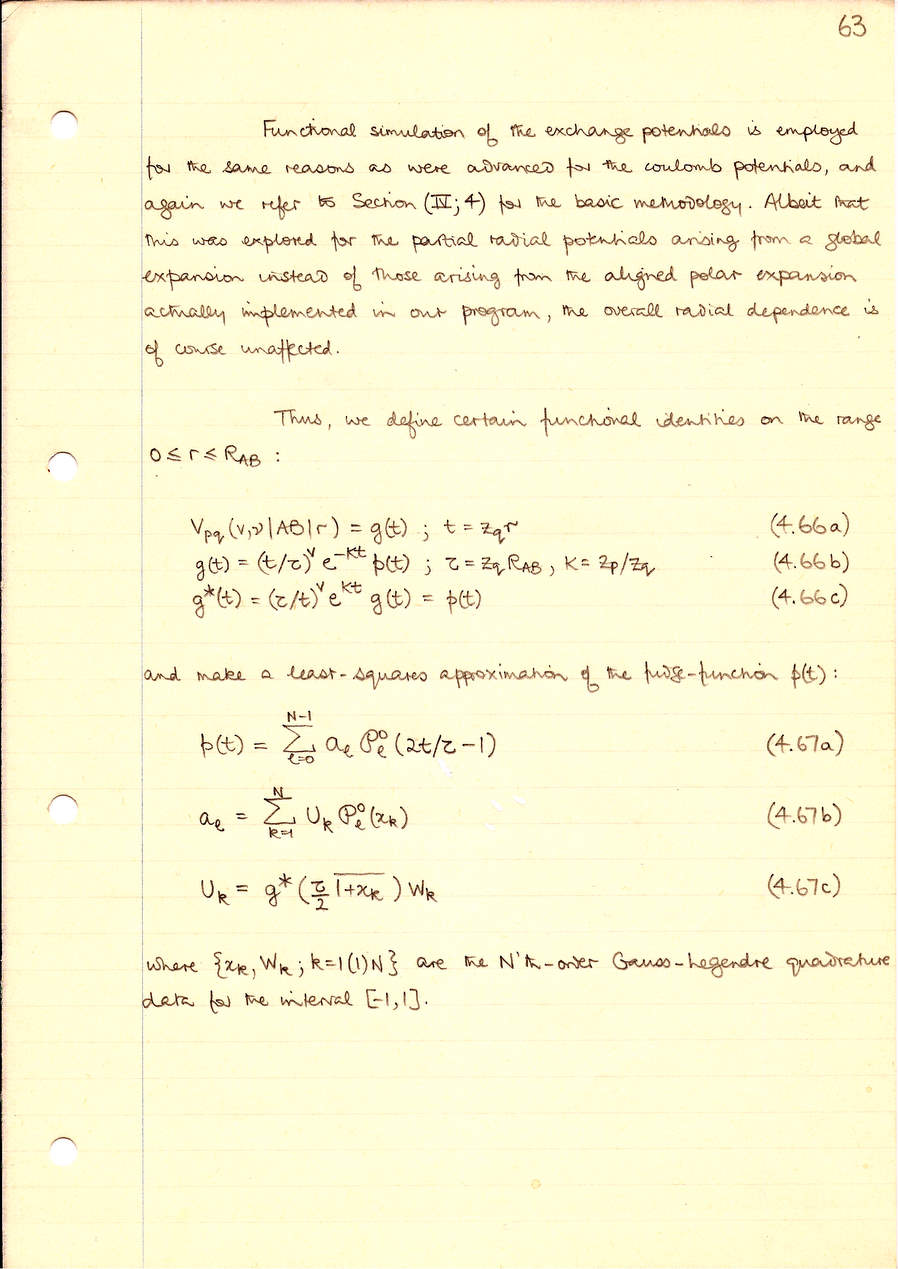 63
Functional simulation of the exchange potentials is employed
for the same reasons as were advanced for the coulomb potentials, and
again we refer to Section (IV; 4) for the basic methodology. Albeit that
this was explored for the partial radial potentials arising from a global
expansion instead of those arising from the aligned polar expansion
actually implemented in our program, the overall radial dependence is
of course unaffected.
Thus, we define certain functional identities on the range
0 ≤ r ≤ R_AB :
V_pq (v,ν|AB|r) = g(t) ; t = z_q r (4.66a)
g(t) = (t/τ)^v e^-κt p(t) ; τ = z_q R_AB , κ = z_p/z_q (4.66b)
g*(t) = (τ/t)^v e^κt g(t) = p(t) (4.66c)
and make a least-squares approximation of the fudge-function p(t) :
p(t) = ∑_{ℓ=0}^{N-1} a_ℓ 𝒫_ℓ^0 (2t/τ - 1) (4.67a)
a_ℓ = ∑_{k=1}^{N} U_k 𝒫_ℓ^0 (x_k) (4.67b)
U_k = g* (τ/2 \overline{1+x_k} ) W_k (4.67c)
where {x_k, W_k ; k=1(1)N} are the N'th-order Gauss-Legendre quadrature
data for the interval [-1,1].